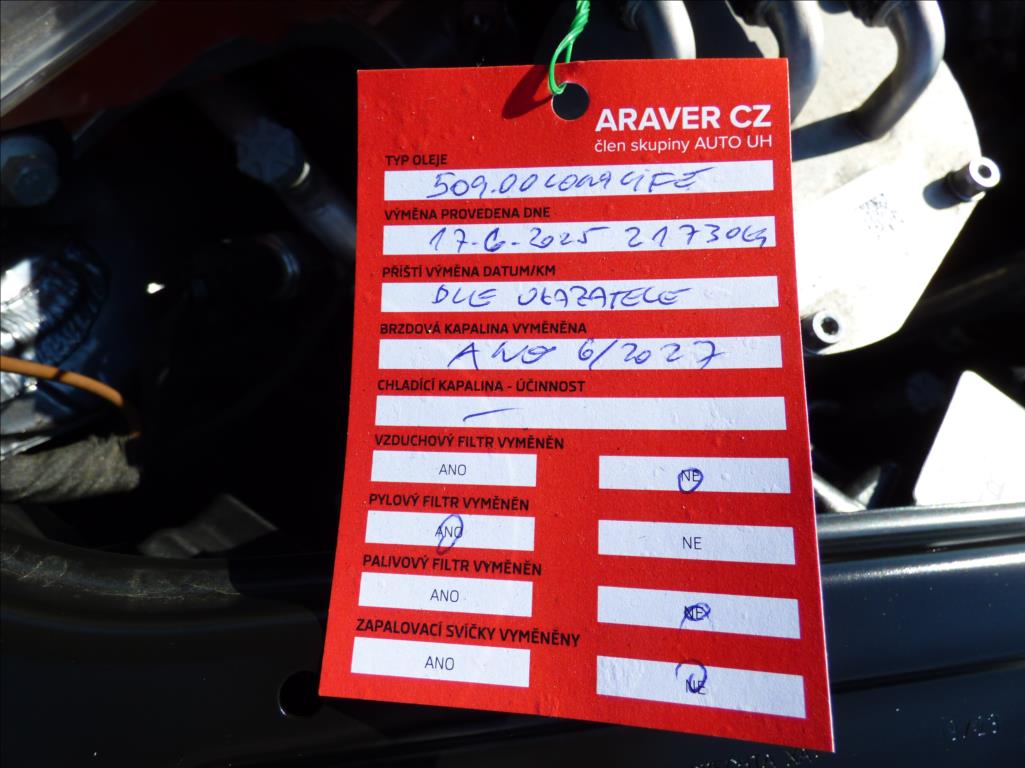 ARAVER CZ
člen skupiny AUTO UH
TYP OLEJE
509.00 LONGLIFE
VÝMĚNA PROVEDENA DNE
17.6.2025 21730
PŘÍŠTÍ VÝMĚNA DATUM/KM
DLE UKAZATELE
BRZDOVÁ KAPALINA VYMĚNĚNA
ANO 6/2027
CHLADÍCÍ KAPALINA - ÚČINNOST
—
VZDUCHOVÝ FILTR VYMĚNĚN
ANO NE
PYLOVÝ FILTR VYMĚNĚN
ANO NE
PALIVOVÝ FILTR VYMĚNĚN
ANO NE
ZAPALOVACÍ SVÍČKY VYMĚNĚNY
ANO NE